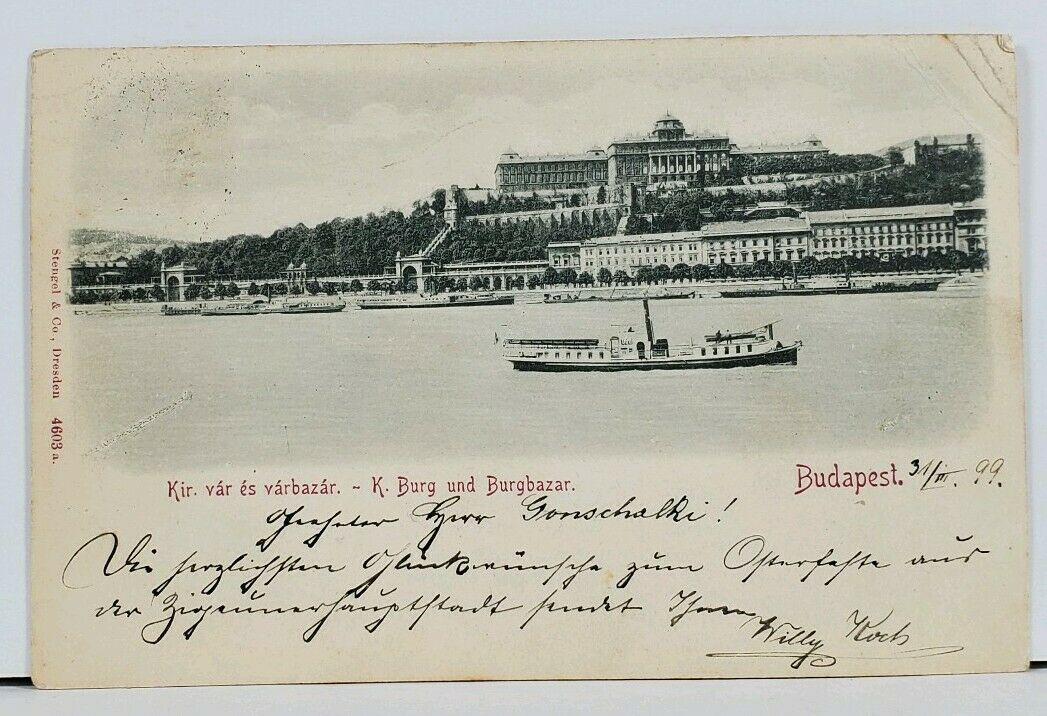 Stengel & Co., Dresden 4603 a.
Kir. vár és várbazár. - K. Burg und Burgbazar.
Budapest. 31/III. 99.
Geehrter Herr Gonschalki!
Die herzlichsten Glückwünsche zum Osterfeste aus
der Zigeunerhauptstadt sendet Ihnen
Willy Koch